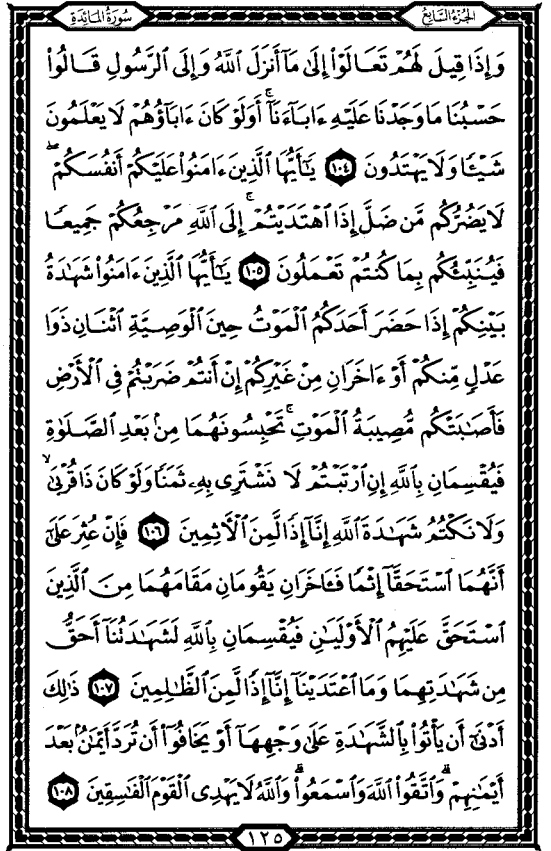 سُورَةُ المَائِدَةِ
الجُزْءُ السَّابِعُ
وَإِذَا قِيلَ لَهُمْ تَعَالَوْاْ إِلَىٰ مَآ أَنزَلَ ٱللَّهُ وَإِلَى ٱلرَّسُولِ قَالُواْ
حَسْبُنَا مَا وَجَدْنَا عَلَيْهِ ءَابَآءَنَآ ۚ أَوَلَوْ كَانَ ءَابَآؤُهُمْ لَا يَعْلَمُونَ
شَيْـًٔا وَلَا يَهْتَدُونَ ١٠٤ يَـٰٓأَيُّهَا ٱلَّذِينَ ءَامَنُواْ عَلَيْكُمْ أَنفُسَكُمْ ۖ
لَا يَضُرُّكُم مَّن ضَلَّ إِذَا ٱهْتَدَيْتُمْ ۚ إِلَى ٱللَّهِ مَرْجِعُكُمْ جَمِيعًا
فَيُنَبِّئُكُم بِمَا كُنتُمْ تَعْمَلُونَ ١٠٥ يَـٰٓأَيُّهَا ٱلَّذِينَ ءَامَنُواْ شَهَـٰدَةُ
بَيْنِكُمْ إِذَا حَضَرَ أَحَدَكُمُ ٱلْمَوْتُ حِينَ ٱلْوَصِيَّةِ ٱثْنَانِ ذَوَا
عَدْلٍ مِّنكُمْ أَوْ ءَاخَرَانِ مِنْ غَيْرِكُمْ إِنْ أَنتُمْ ضَرَبْتُمْ فِى ٱلْأَرْضِ
فَأَصَـٰبَتْكُم مُّصِيبَةُ ٱلْمَوْتِ ۚ تَحْبِسُونَهُمَا مِنۢ بَعْدِ ٱلصَّلَوٰةِ
فَيُقْسِمَانِ بِٱللَّهِ إِنِ ٱرْتَبْتُمْ لَا نَشْتَرِى بِهِۦ ثَمَنًا وَلَوْ كَانَ ذَا قُرْبَىٰ ۙ
وَلَا نَكْتُمُ شَهَـٰدَةَ ٱللَّهِ إِنَّآ إِذًا لَّمِنَ ٱلْـَٔاثِمِينَ ١٠٦ فَإِنْ عُثِرَ عَلَىٰٓ
أَنَّهُمَا ٱسْتَحَقَّآ إِثْمًا فَـَٔاخَرَانِ يَقُومَانِ مَقَامَهُمَا مِنَ ٱلَّذِينَ
ٱسْتَحَقَّ عَلَيْهِمُ ٱلْأَوْلَيَـٰنِ فَيُقْسِمَانِ بِٱللَّهِ لَشَهَـٰدَتُنَآ أَحَقُّ
مِن شَهَـٰدَتِهِمَا وَمَا ٱعْتَدَيْنَآ إِنَّآ إِذًا لَّمِنَ ٱلظَّـٰلِمِينَ ١٠٧ ذَٰلِكَ
أَدْنَىٰٓ أَن يَأْتُواْ بِٱلشَّهَـٰدَةِ عَلَىٰ وَجْهِهَآ أَوْ يَخَافُوٓاْ أَن تُرَدَّ أَيْمَـٰنٌۢ بَعْدَ
أَيْمَـٰنِهِمْ ۗ وَٱتَّقُواْ ٱللَّهَ وَٱسْمَعُواْ ۗ وَٱللَّهُ لَا يَهْدِى ٱلْقَوْمَ ٱلْفَـٰسِقِينَ ١٠٨
١٢٥